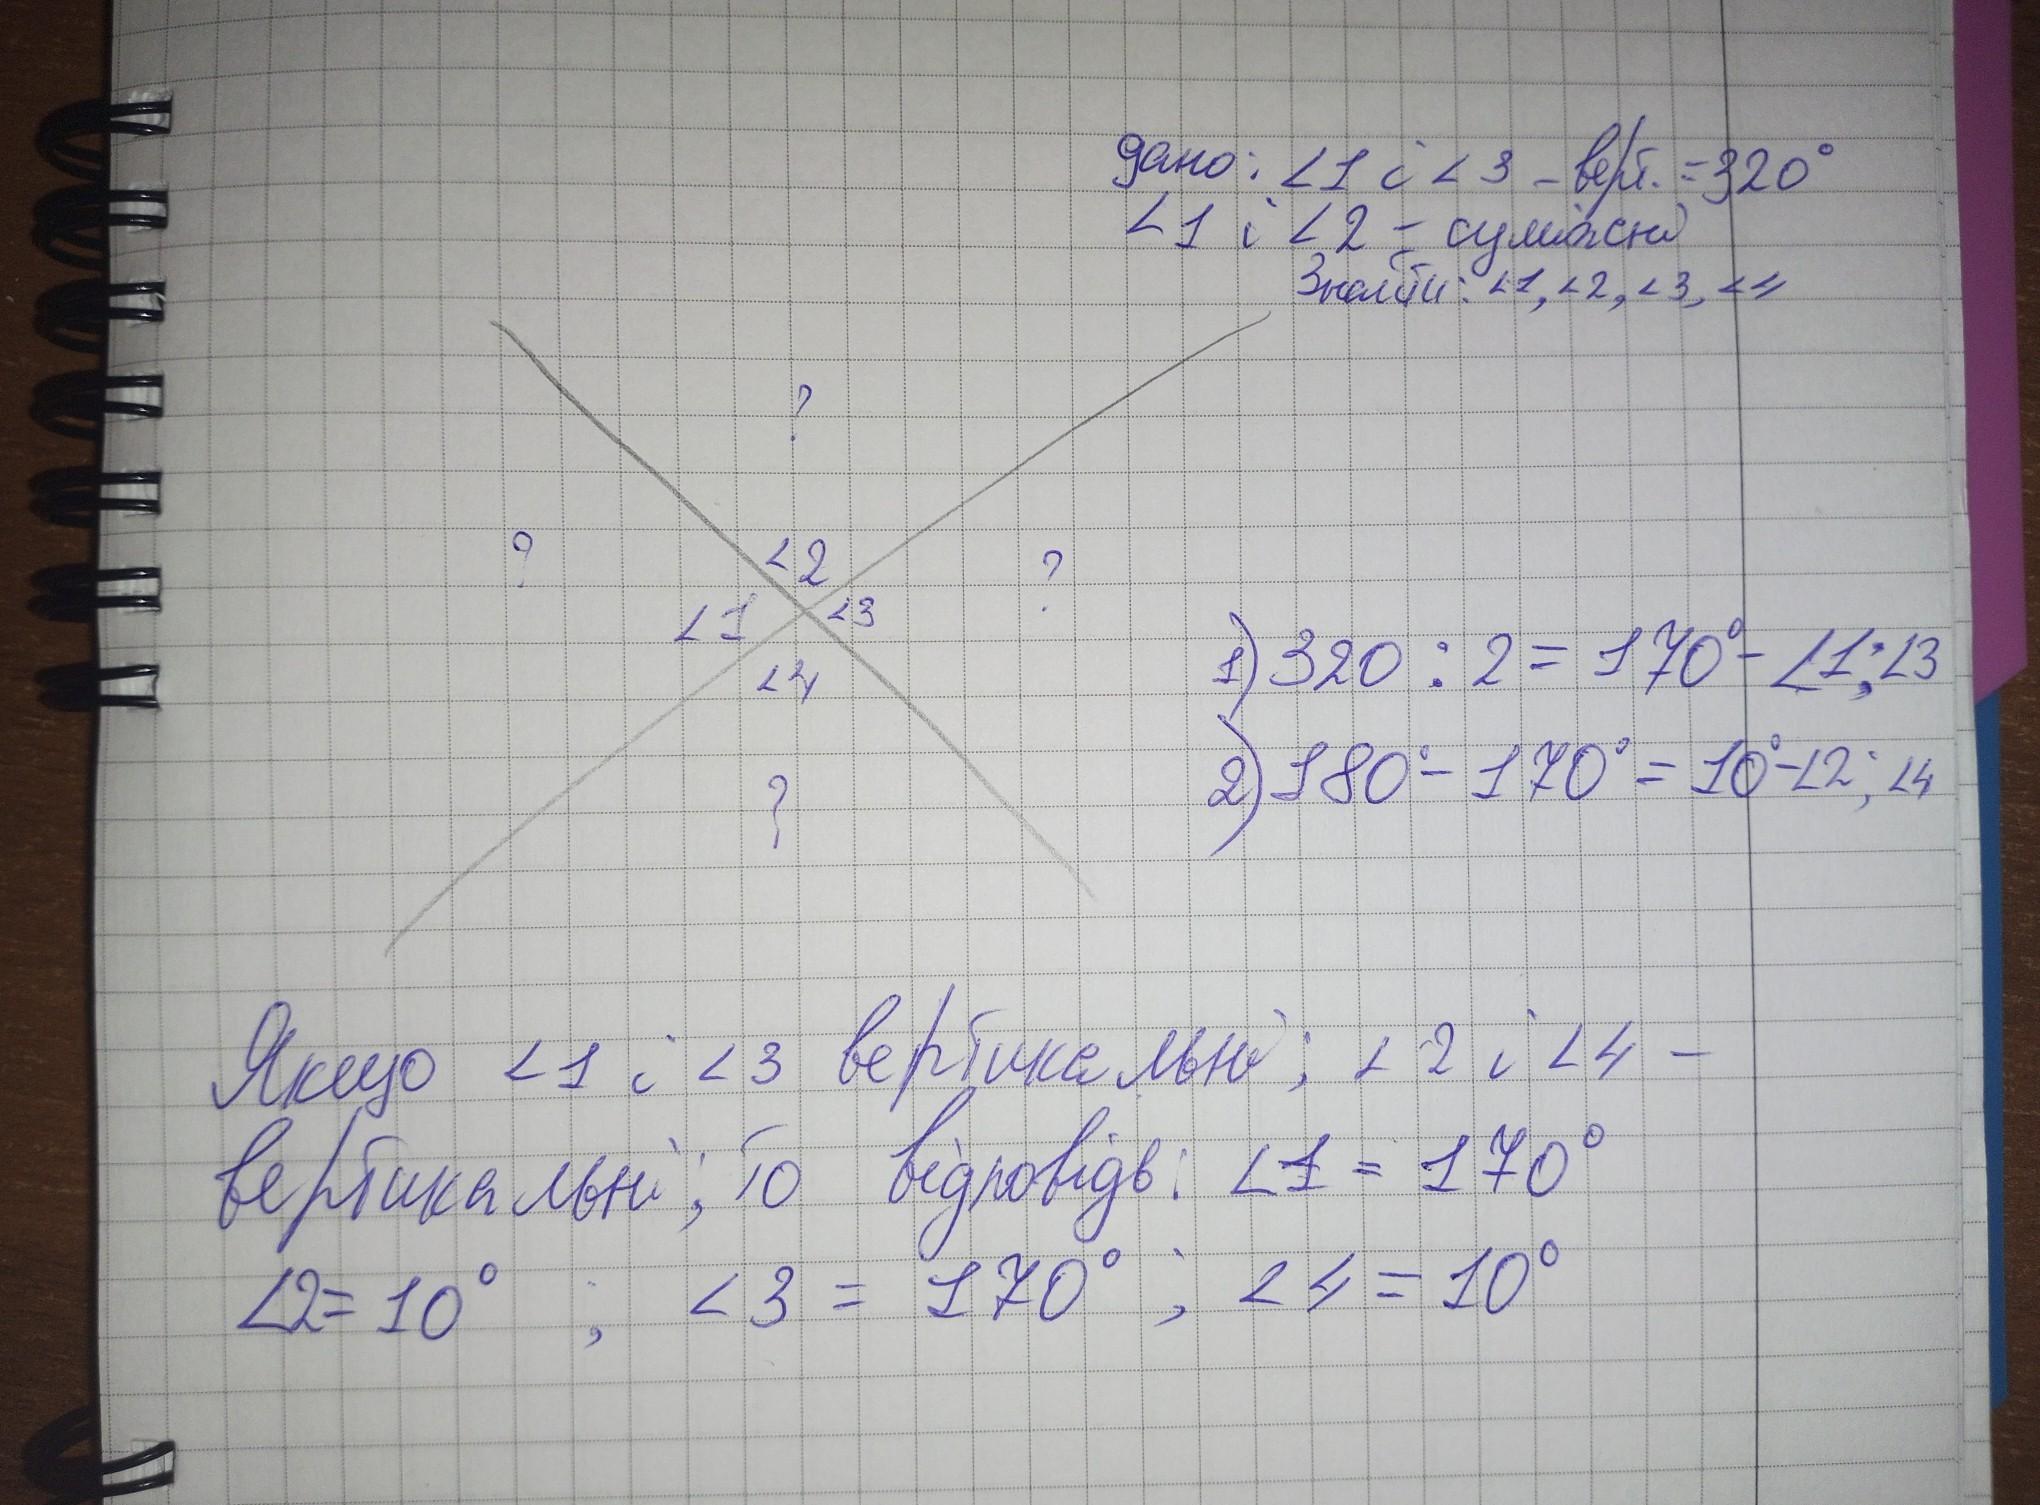 дано: ∠1 і ∠3 - верт. = 320°
∠1 і ∠2 - суміжні
Знайти: ∠1, ∠2, ∠3, ∠4
?
? ∠2 ?
∠1 ∠3
∠4
?
1) 320 : 2 = 170° - ∠1; ∠3
2) 180° - 170° = 10° - ∠2; ∠4
Якщо ∠1 і ∠3 вертикальні; ∠2 і ∠4 -
вертикальні; то відповідь: ∠1 = 170°
∠2 = 10° ; ∠3 = 170° ; ∠4 = 10°